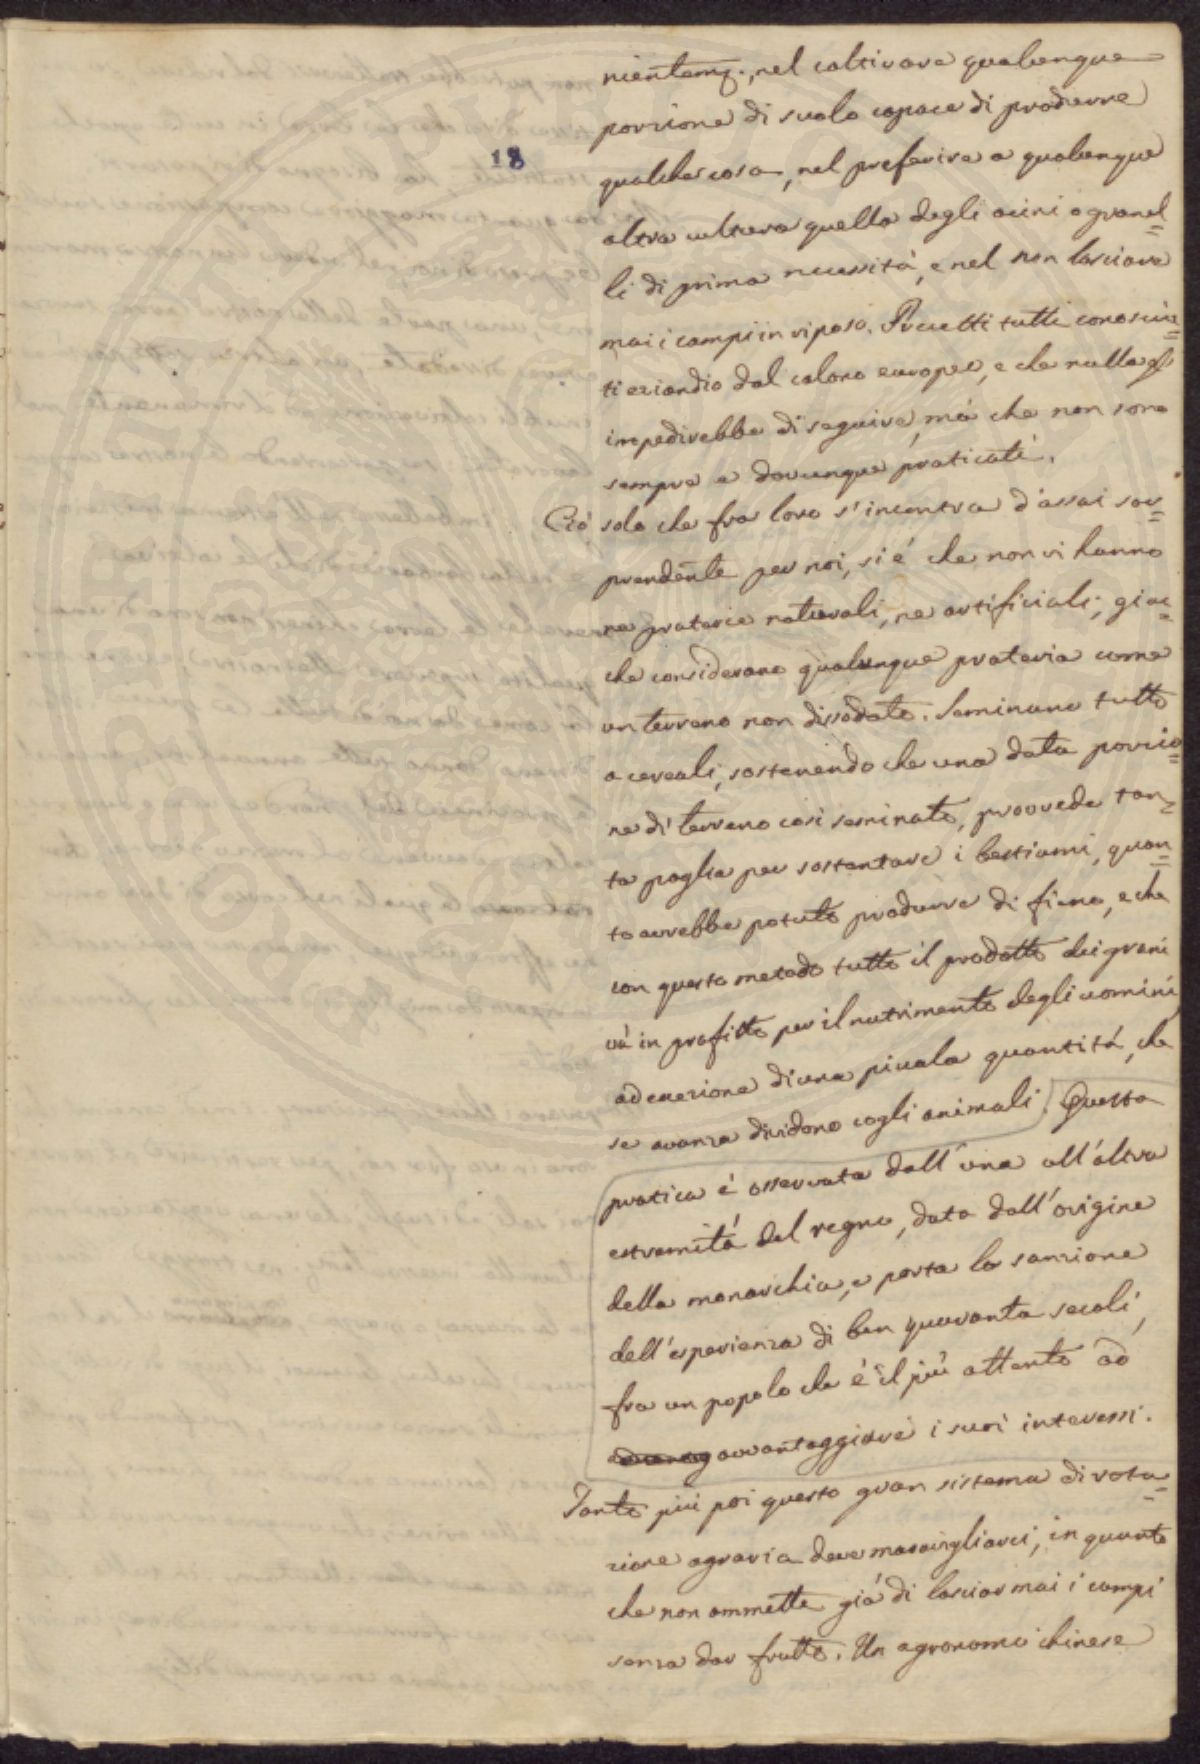 18
nientemq., nel coltivare qualunque
porzione di suolo capace di produrre
qualche cosa, nel preferire a qualunque
altra cultura quella degli acini o granel=
li di prima necessità, e nel non lasciare
mai i campi in riposo. Precetti tutti conosciu=
ti eziandio dal colono europeo, e che nulla gl'
impedirebbe di seguire, mà che non sono
sempre e dovunque praticati.
Ciò solo che fra loro s'incontra d'assai sor=
prendente per noi, si é che non vi hanno
ne praterie naturali, ne artificiali; giac=
che considerano qualunque prateria come
un terreno non dissodato. Seminano tutto
a cereali, sostenendo che una data porzio=
ne di terreno così seminato, provvede tan=
ta paglia per sostentare i bestiami, quan=
to avrebbe potuto produrre di fieno, e che
con questo metodo tutto il prodotto dei grani
và in profitto per il nutrimento degli uomini
ad eccezione di una piccola quantità, che
se avanza dividono cogli animali. Questa
pratica é osservata dall'una all'altra
estremità del regno, data dall'origine
della monarchia, e porta la sanzione
dell'esperienza di ben quaranta secoli,
fra un popolo che é il più attento ad
avvantaggiare i suoi interessi.
Tanto più poi questo gran sistema di rota=
zione agraria deve maravigliarci, in quanto
che non ammette già di lasciar mai i campi
senza dar frutto. Un agronomo chinese